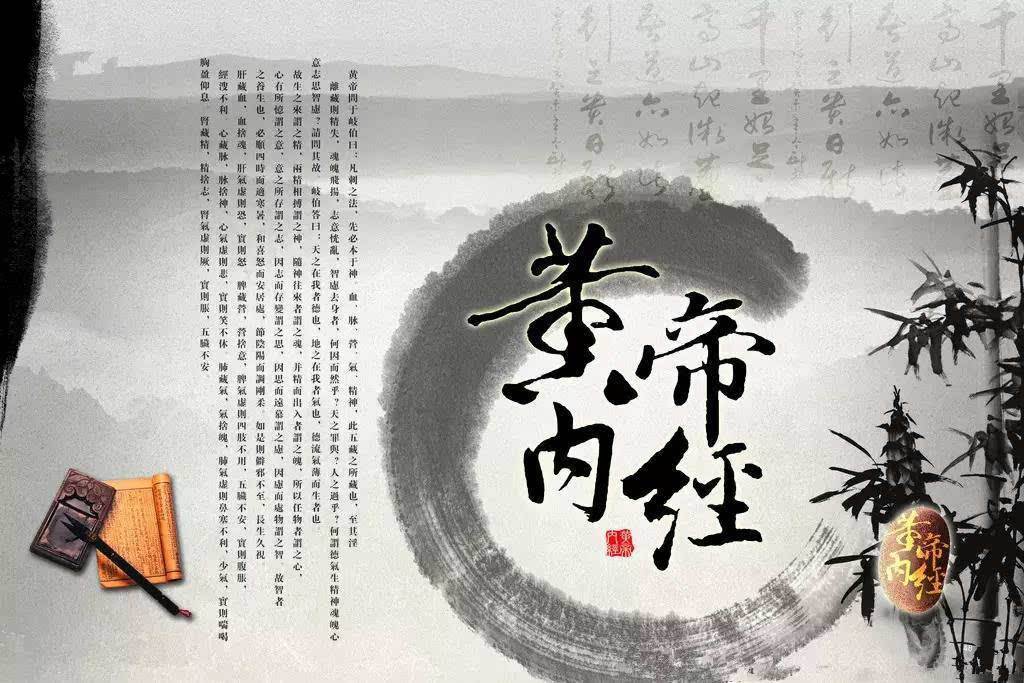 黃帝內經
黃帝內經
黃帝問于岐伯曰:凡刺之法,先必本于神 血、脉、營、氣、精神,此五藏之所藏也,至其淫
離藏則精失、魂魄飛揚、志意恍亂、智慮去身者,何因而然乎?天之罪與?人之過乎?何謂德氣生精神魂魄心
意志思智慮?請問其故 岐伯答曰:天之在我者德也,地之在我者氣也,德流氣薄而生者也
故生之來謂之精,兩精相搏謂之神,隨神往來者謂之魂,并精而出入者謂之魄,所以任物者謂之心,
心有所憶謂之意,意之所存謂之志,因志而存變謂之思,因思而遠慕謂之慮,因慮而處物謂之智 故智者
之養生也,必順四時而適寒暑,和喜怒而安居處,節陰陽而調剛柔 如是則僻邪不至,長生久視
肝藏血,血捨魂,肝氣虛則恐,實則怒 脾藏營,營捨意,脾氣虛則四肢不用,五臟不安,實則腹脹,
經溲不利 心藏脉,脉捨神,心氣虛則悲,實則笑不休 肺藏氣,氣捨魄,肺氣虛則鼻塞不利,少氣,實則喘喝
胸盈仰息 腎藏精,精捨志,腎氣虛則厥,實則脹,五臟不安
黃帝內經